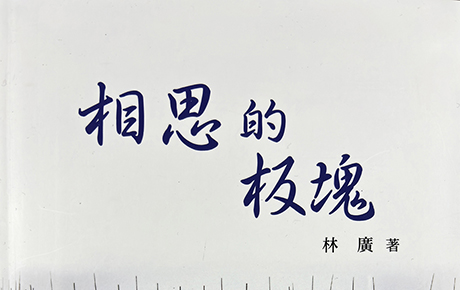 相思的
板塊
林廣 著